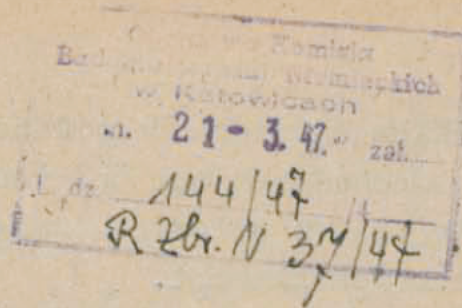 Komisja
Niemieckich
w Katowicach
21 - 3. 47. zał.
L. dz. 144/47
R Zbr. N 37/47